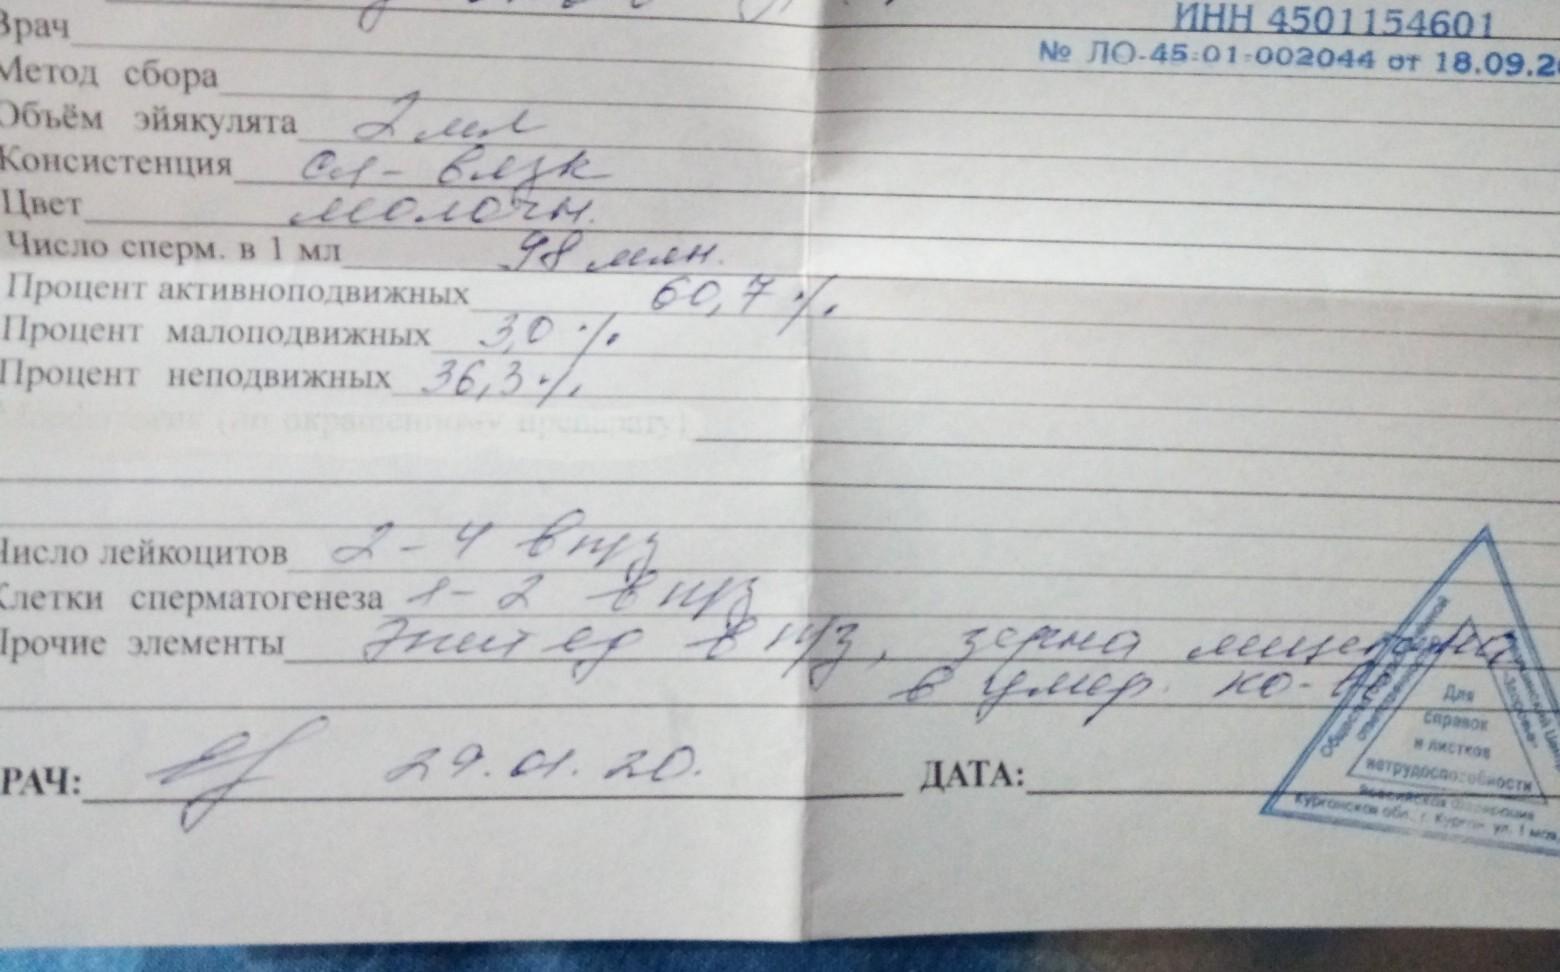 ИНН 4501154601
№ ЛО-45-01-002044 от 18.09.20
Врач
Метод сбора
Объём эйякулята 2 мл
Консистенция сл-вязк
Цвет молочн.
Число сперм. в 1 мл 98 млн.
Процент активноподвижных 60,7%
Процент малоподвижных 3,0%
Процент неподвижных 36,3%
Морфология (по окрашенному препарату)
Число лейкоцитов 2-4 в п/з
Клетки сперматогенеза 1-2 в п/з
Прочие элементы Эпит ед в п/з, зерна лицетина
в умер. ко-ве
РАЧ: 29.01.20. ДАТА:
Для
справок
и листков
нетрудоспособности
Российская Федерация
Курганская обл., г. Курган ул. 1 мая,